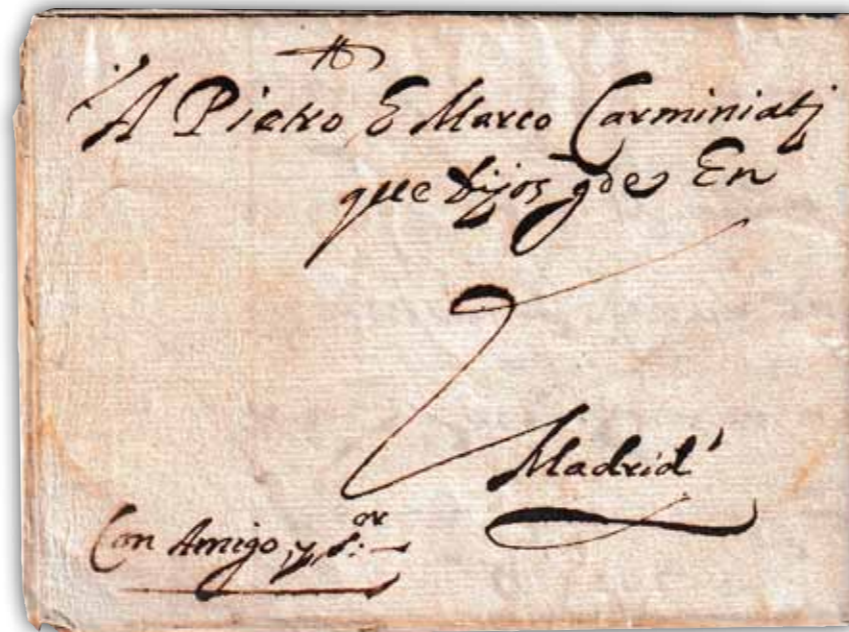 A Pietro E Marco Carminiatj
que dijos gde En
Madrid
Con Amigo, y s:or